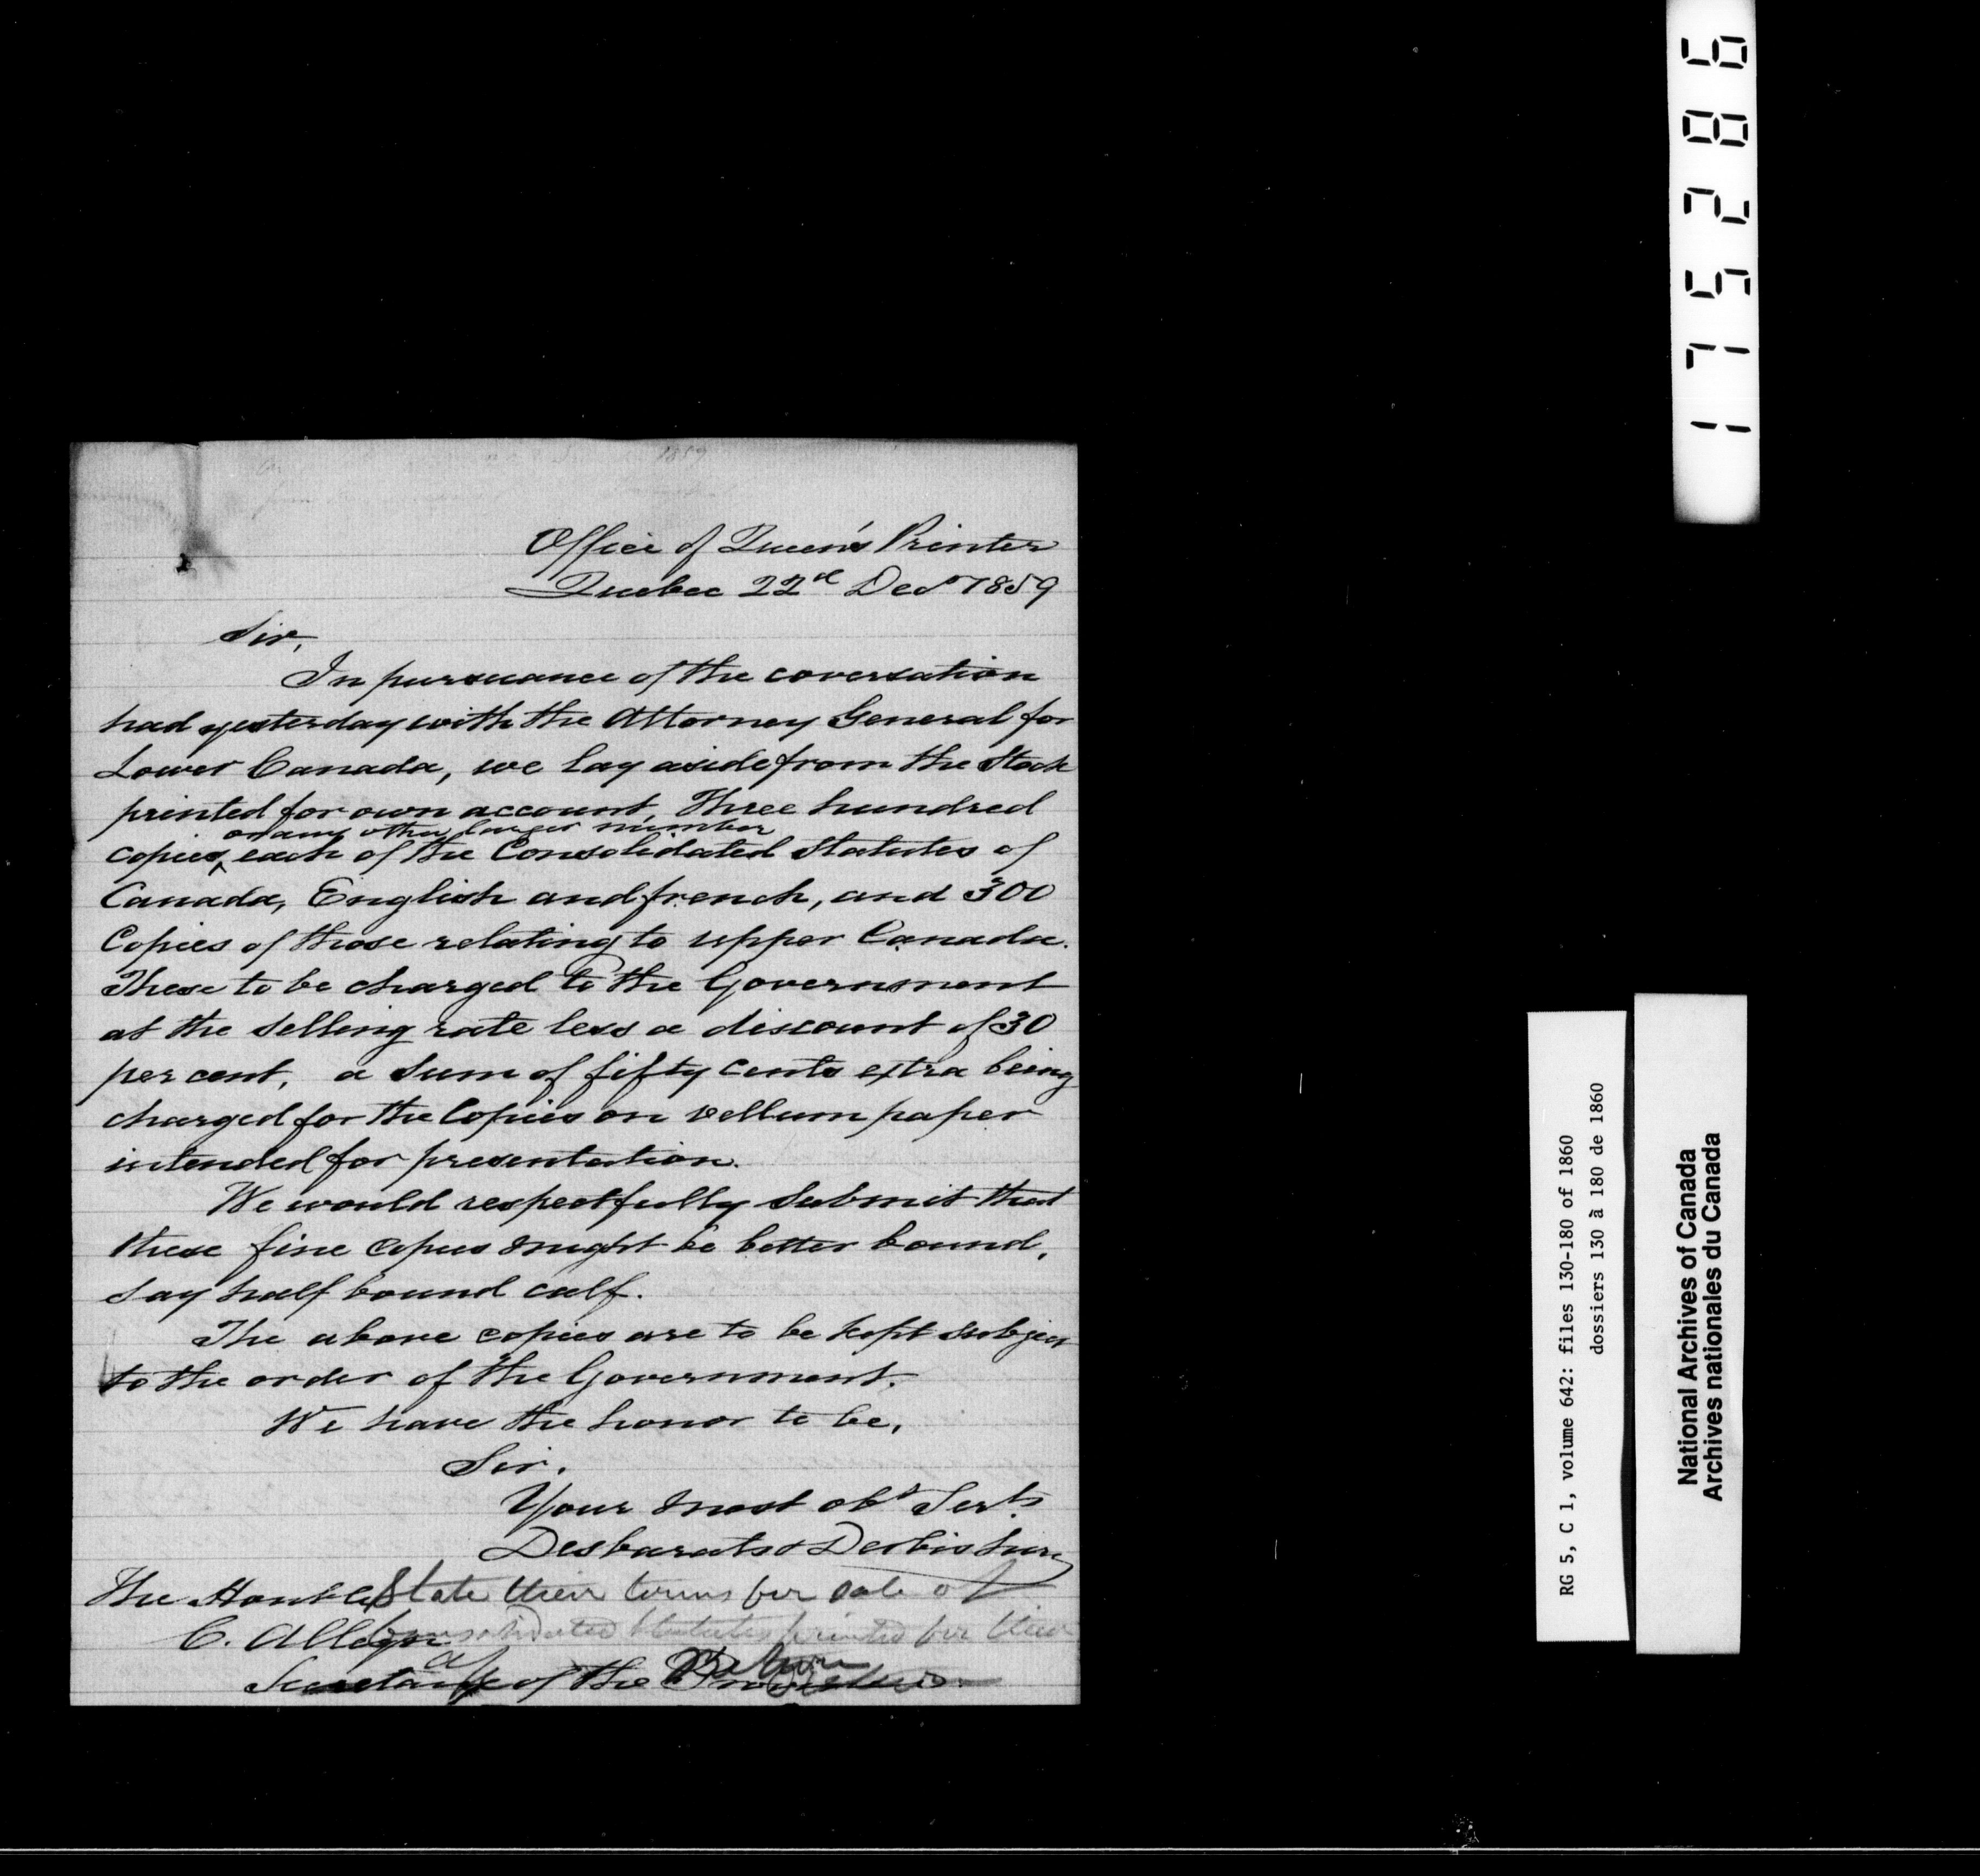 Office of Queen's Printer
Quebec 22d Decr 1859
Sir,
In pursuance of the coversation
had yesterday with the Attorney General for
Lower Canada, we lay aside from the Stock
printed for own account, Three hundred
or any other larger number
copies, each of the Consolidated Statutes of
Canada, English and french, and 300
Copies of those relating to upper Canada.
These to be charged to the Government
at the selling rate less a discount of 30
per cent, a sum of fifty cents extra being
charged for the Copies on vellum paper
intended for presentation.
We would respectfully submit that
these fine copies might be better bound,
say half bound calf.
The above copies are to be kept subject
to the order of the Government.
We have the honor to be,
Sir.
Your most obt Servts
Desbarats & Derbishire
The Honble
State their terms for sale of
C. Alleyn
Consolidated Statutes printed for their
Secretary of the Province
175286
RG 5, C 1, volume 642: files 130-180 of 1860
dossiers 130 à 180 de 1860
National Archives of Canada
Archives nationales du Canada